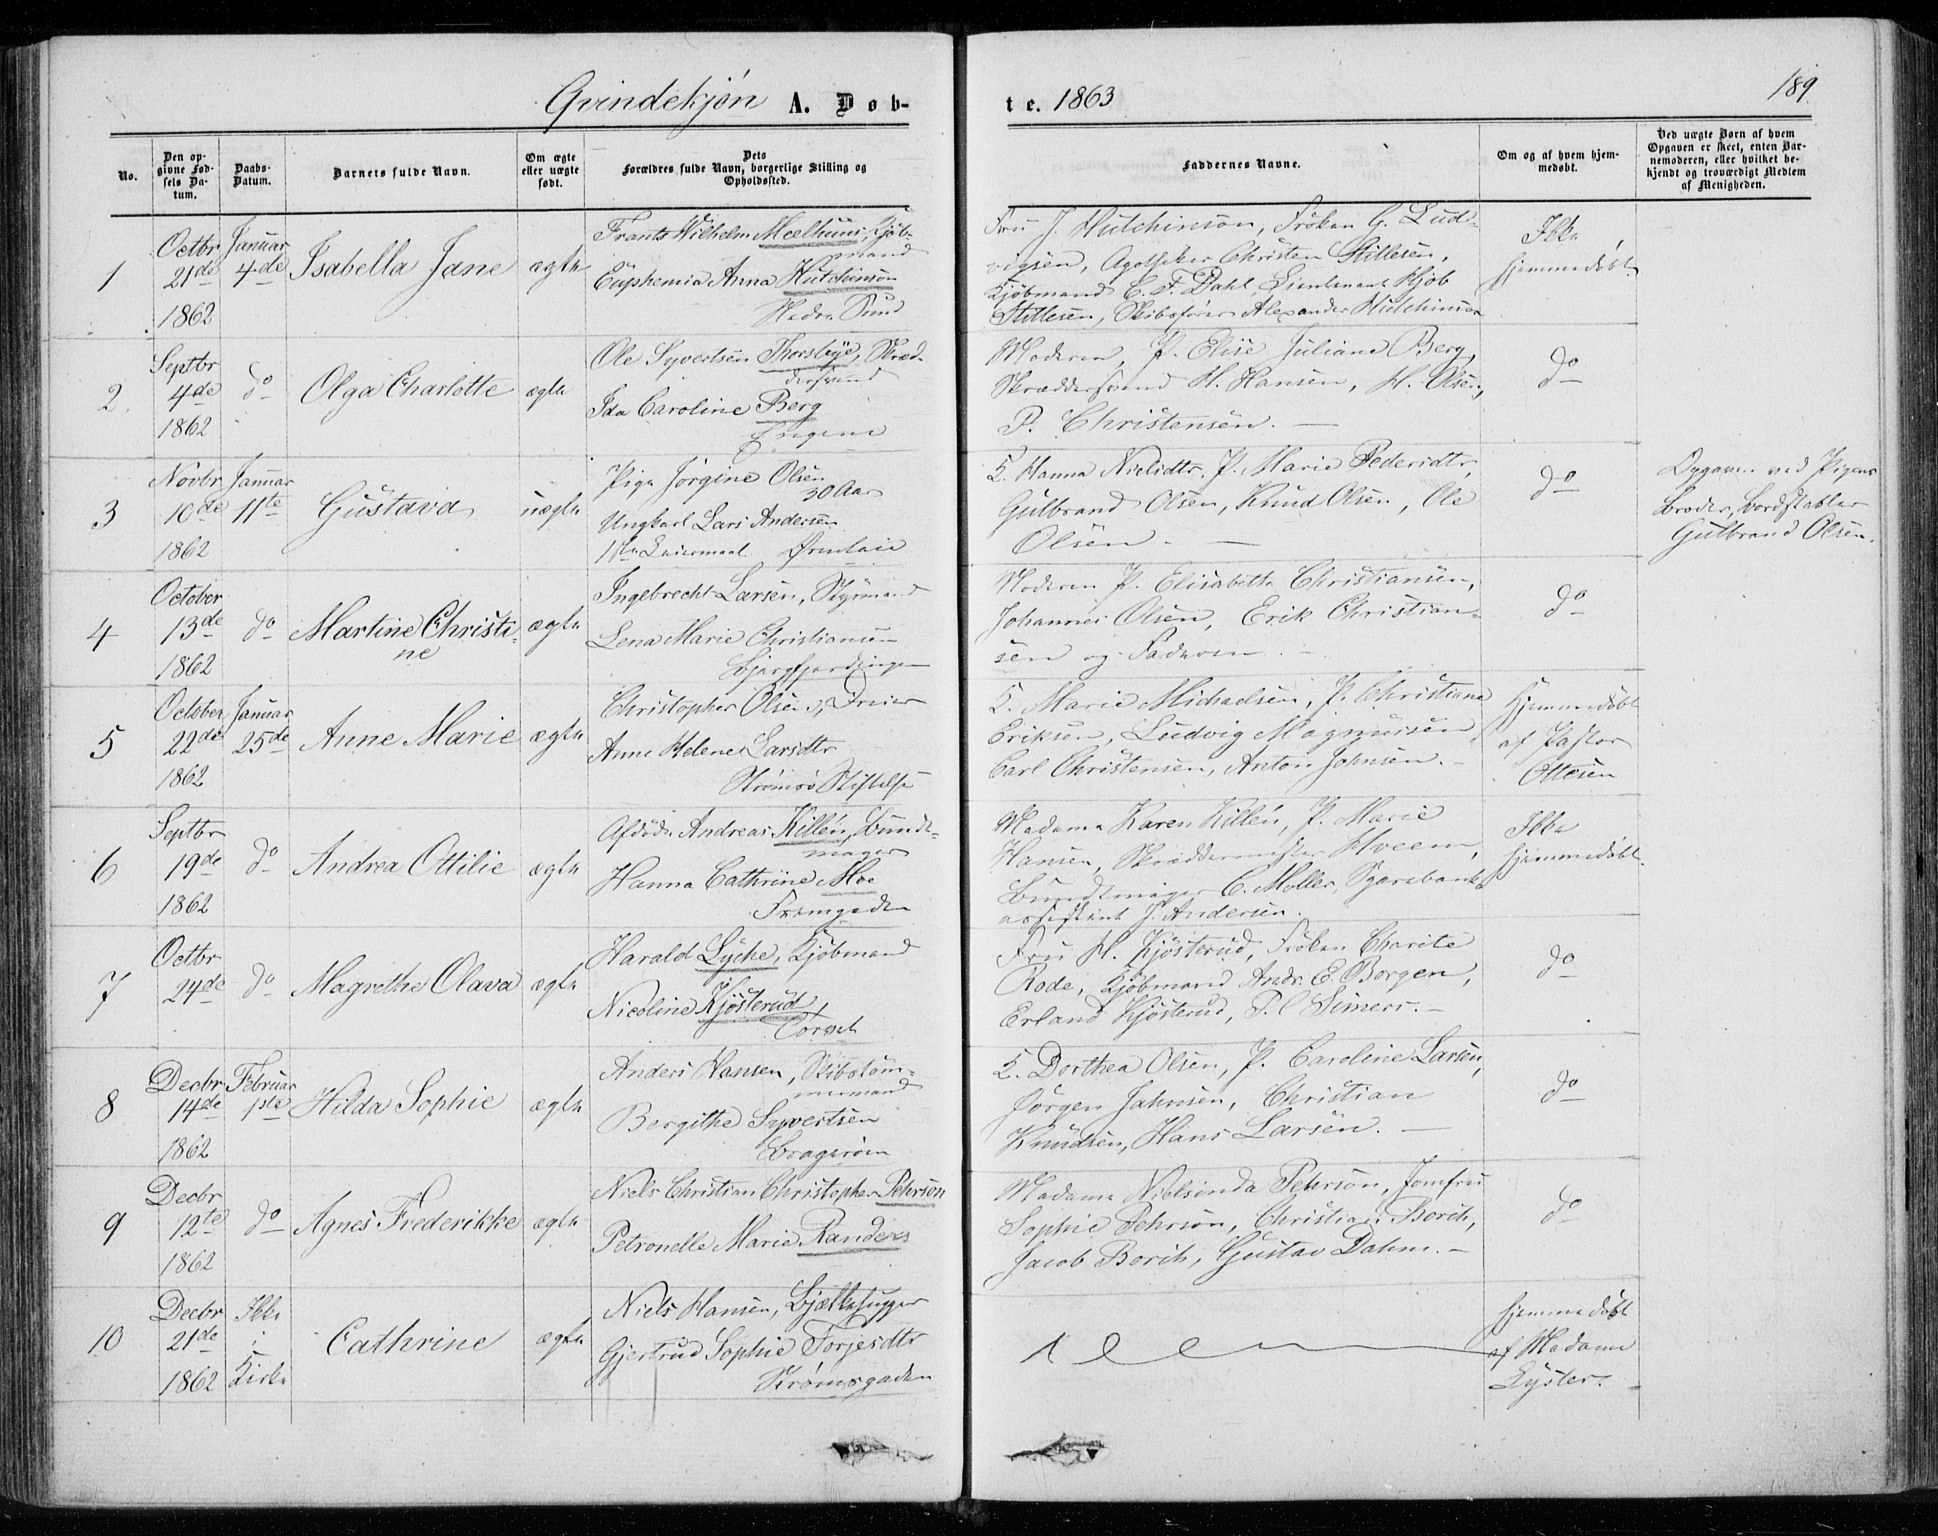 Qvindekjøn A. Døb-
te. 1863
189
No.
Den op-
givne Fød-
sels Da-
tum.
Daabs-
Datum.
Barnets fulde Navn.
Om ægte
eller uægte
født.
Dets
Forældres fulde Navn, borgerlige Stilling og
Opholdssted.
Faddernes Navne.
Om og af hvem hjem-
medøbt.
Ved uægte Børn af hvem
Opgaven er skeet, enten Bar-
nemoderen, eller hvilket be-
kjendt og troværdigt Medlem
af Menigheden.
1
Octbr
21de
1862
Januar
4de
Isabella Jane
ægte
Frants Wilhelm Mælhuus, Kjøb-
mand
Euphemia Anna Hutchinson
Nedre Sund
Fru J. Hutchinson, Frøken G. Lud-
vigsen, Apotheker Christen Stillesen,
Kjøbmand C. F. Dahl, Lieutenant Kjøb
Stillesen, Skibsfører Alexander Hutchinson
Ikke
hjemmedøbt
2.
Septbr
4de
1862
do
Olga Charlotte
ægte
Ole Syvertsen Thorsbye, Skræd-
dersvend
Ida Caroline Berg
Moderen, P. Elise Juliane Berg,
Skræddersvend H. Hansen, H. Olsen,
P. Christensen. —
do
3
Novbr
10de
1862
Januar
11te
Gustava
uægte
Pige Jørgine Olsen
30 Aar
Ungkarl Lars Andersen
1ste Leiermaal
K. Hanna Nielsdtr, P. Marie Pedersdtr,
Gulbrand Olsen, Knud Olsen, Ole
Olsen. —
do
Opgaven ved Pigens
Broder, Bordstabler
Gulbrand Olsen.
4
October
13de
1862
do
Martine Christi-
ne
ægte
Ingebrecht Larsen, Styrmand
Lena Marie Christiansen
Bjergfjerdingen
Moderen, P. Elisabeth Christiansen,
Johannes Olsen, Erik Christian-
sen og Faderen. —
do
5
October
22de
1862
Januar
25de
Anne Marie
ægte
Christopher Olsen, Dreier
Anne Helene Larsdtr
Strømsø Stiftelse
K. Marie Michaelsen, P. Christiane
Eriksen, Ludvig Magnussen,
Carl Christensen, Anton Johnsen. —
Hjemmedøbt
af Pastor
Ottesen
6
Septbr
19de
1862
do
Andrea Ottilie
ægte
Afdøde Andreas Killén, Bundt-
mager
Hanna Cathrine Moe
Fremgaden
Madame Karen Killén, P. Marie
Hansen, Skræddermester Hveem,
Bundtmager C. Møller, Sparebank-
assistent J. Andersen.
Ikke
hjemmedøbt.
7
Octbr
24de
do
Magrethe Olava
ægte
Harald Lyche, Kjøbmand
Nicoline Kjøsterud,
Torvet
Fru H. Kjøsterud, Frøken Charite
Rode, Kjøbmand Andr. E. Borgen,
Erland Kjøsterud, P. C Simers. —
do
8
Decbr
14de
1862
Februar
1ste
Hilda Sophie
ægte
Anders Hansen, Skibstøm-
mermand
Bergithe Syvertsen
Bragerøen
K. Dorthea Olsen, P. Caroline Larsen,
Jørgen Jahnsen, Christian
Knudsen, Hans Larsen. —
do
9
Decbr
12te
1862
do
Agnes Frederikke
ægte
Niels Christian Christopher Pehrson
Petronelle Marie Randers
Madame Nielsinda Pehrson, Jomfru
Sophie Pehrson, Christian Borch,
Jacob Borch, Gustav Dahm. —
do
10
Decbr
21de
1862
Ikke
i
Kirke
Cathrine
ægte
Niels Hansen, Bjælkehugger
Gjertrud Sophie Torjesdtr
Strømsgaden
hjemmedøbt
af Madame
Lyster. —